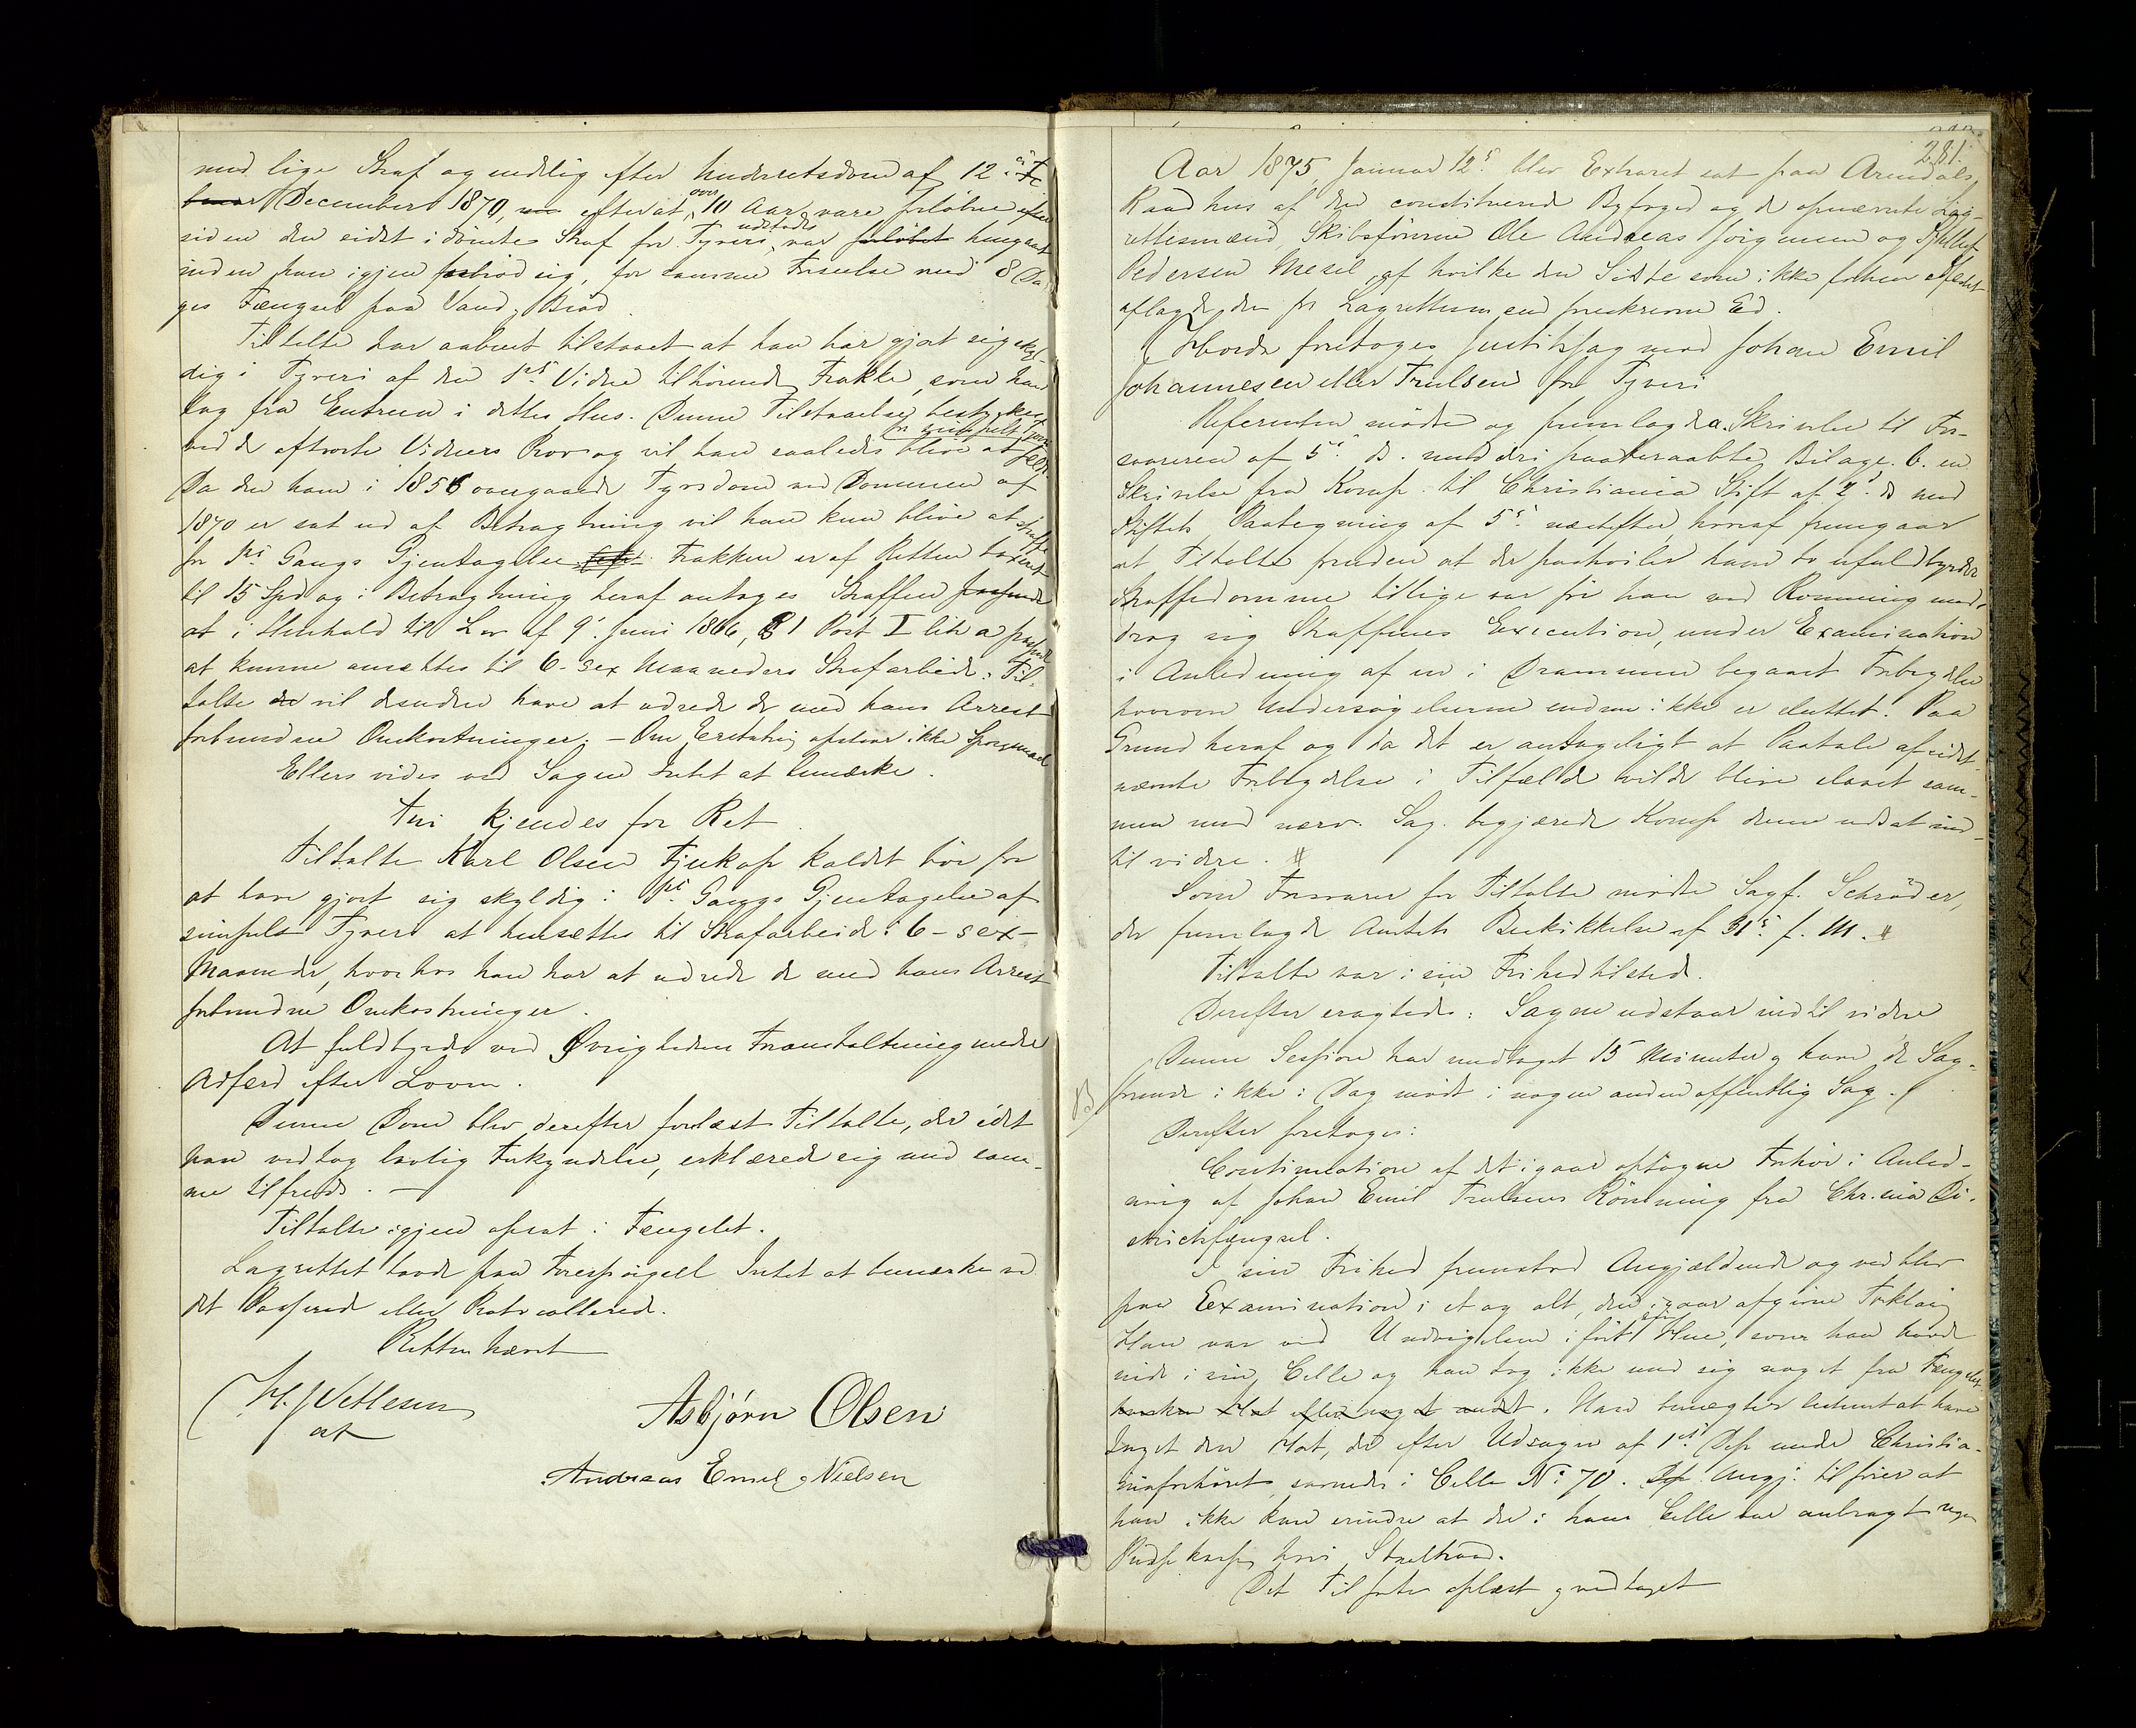 med lige Straf og endelig efter Underretsdom af 12te
December 1870, efterat over 10 Aar vare forløbne
siden den sidst idømte Straf for Tyveri udstodes, var
inden han igjen forbrød sig, for samme Forseelse med 8 Da-
ges Fængsel paa Vand & Brød.
Tiltalte har aabent tilstaaet at han har gjort sig skyl-
dig i Tyveri af den Vidne tilhørende Frakke, som han
tog fra Entreen i dettes Hus. Denne Tilstaaelse bestyrkes
ved de aflagte Vidners Prov og vil han saaledes blive at fælde for simpelt Tyveri
Da den ham i 1856 overgaaede Tyvsdom ved Dommen af
1870 er sat ud af Betragtning vil han kun blive at straffe
for 1ste Gangs Gjentagelse. Frakken er af Retten taxeret
til 15 Spd og i Betragtning heraf antages Straffen
at i Henhold til Lov af 9de Juni 1866, § 1 Post I litr a passende
at kunne ansættes til 6 - sex Maaneders Strafarbeide. Til-
talte vil desuden have at udrede de med hans Arrest
forbundne Omkostninger. - Om Erstatning opstaar ikke Spørgsmaal
Ellers vides ved Sagen Intet at bemærke.
Thi kjendes for Ret
Tiltalte Karl Olsen Fjukop kaldet bør for
at have gjort sig skyldig i 1ste Gangs Gjentagelse af
simpelt Tyveri at hensættes til Strafarbeide i 6 - sex -
Maaneder, hvorhos han har at udrede de med hans Arrest
forbundne Omkostninger.
At fuldbyrdes ved Øvrighedens Foranstaltning under
Adfærd efter Loven.
Denne Dom blev derefter forelæst Tiltalte, der idet
han vedtog lovlig Forkyndelse, erklærede sig med sam-
me tilfreds. -
Tiltalte igjen opsat i Fængslet.
Lagrettet havde paa Forespørgsel Intet at bemærke ved
det Passerede eller Protocollerede.
Retten hævet
H. J. Vetlesen
cst
Asbjørn Olsen
Andreas Emil Nielsen
281.
Aar 1875, Januar 12te blev Extraret sat paa Arendals
Raadhus af den constituerede Byfoged og de opnævnte Lag-
rettesmænd, Skibsførerne Ole Andreas Jörgensen og
Pedersen Mesel, af hvilke den Sidste som ikke forhen edfæstet
aflagde den for Lagrettesmænd foreskrevne Ed.
Hvorda foretoges Justitssag mod Johan Emil
Johannesen eller Trulsen for Tyveri
Referenten mødte og fremlagde a. Skrivelse til For-
svareren af 5te ds. med deri paaberaabte Bilage. b. en
Skrivelse fra Komp. til Christiania Stift af 2den ds med
Stiftets Paategning af 5te næstefter, hvoraf fremgaar
at Tiltalte foruden at der paahviler ham to ufuldbyrdede
Straffedomme tillige var før han ved Rømning und-
drog sig Straffenes Execution, under Examination
i Anledning af en i Drammen begaaet Forbrydelse
hvorom Undersøgelserne endnu ikke er sluttet. Paa
Grund heraf og da det er antageligt at Paatale af sidst-
nævnte Forbrydelse i Tilfælde vilde blive slaaet sam-
men med nærv. Sag. begjærede Komp denne udsat ind-
til videre. #
Som Forsvarer for Tiltalte mødte Sagf. Schrøder,
der fremlagde Amtets Beskikkelse af 31te f. M. #
Tiltalte var i sin Frihed tilstede.
Derefter eragtedes: Sagen udstaar indtil videre
Denne Session har medtaget 15 Minuter & have de Sag-
førende ikke i Dag mødt i nogen anden offentlig Sag.
Derefter foretoges:
Continuation af det igaar optagne Forhør i Anled-
ning af Johan Emil Trulsens Rømning fra Chr.nia Di-
strictsfængsel.
I sin Frihed fremstod Angjældende og vedblev
paa Examination i et og alt, den igaar afgivne Forklaring
Han var ved Undvigelsen iført sin Hue, som han havde
inde i sin Celle og han tog ikke med sig noget fra Fængslet
hverken Hat eller noget andet. Han benægter bestemt at have
taget den Hat, der efter Udsagn af 1ste Dep under Christia-
niaforhøret, savnedes i Celle No 70. Angj. tilføier at
han ikke kan erindre at der i hans Celle var anbragt nogen
hvis Staaltraad.
Det Tilførte oplæst & vedtaget